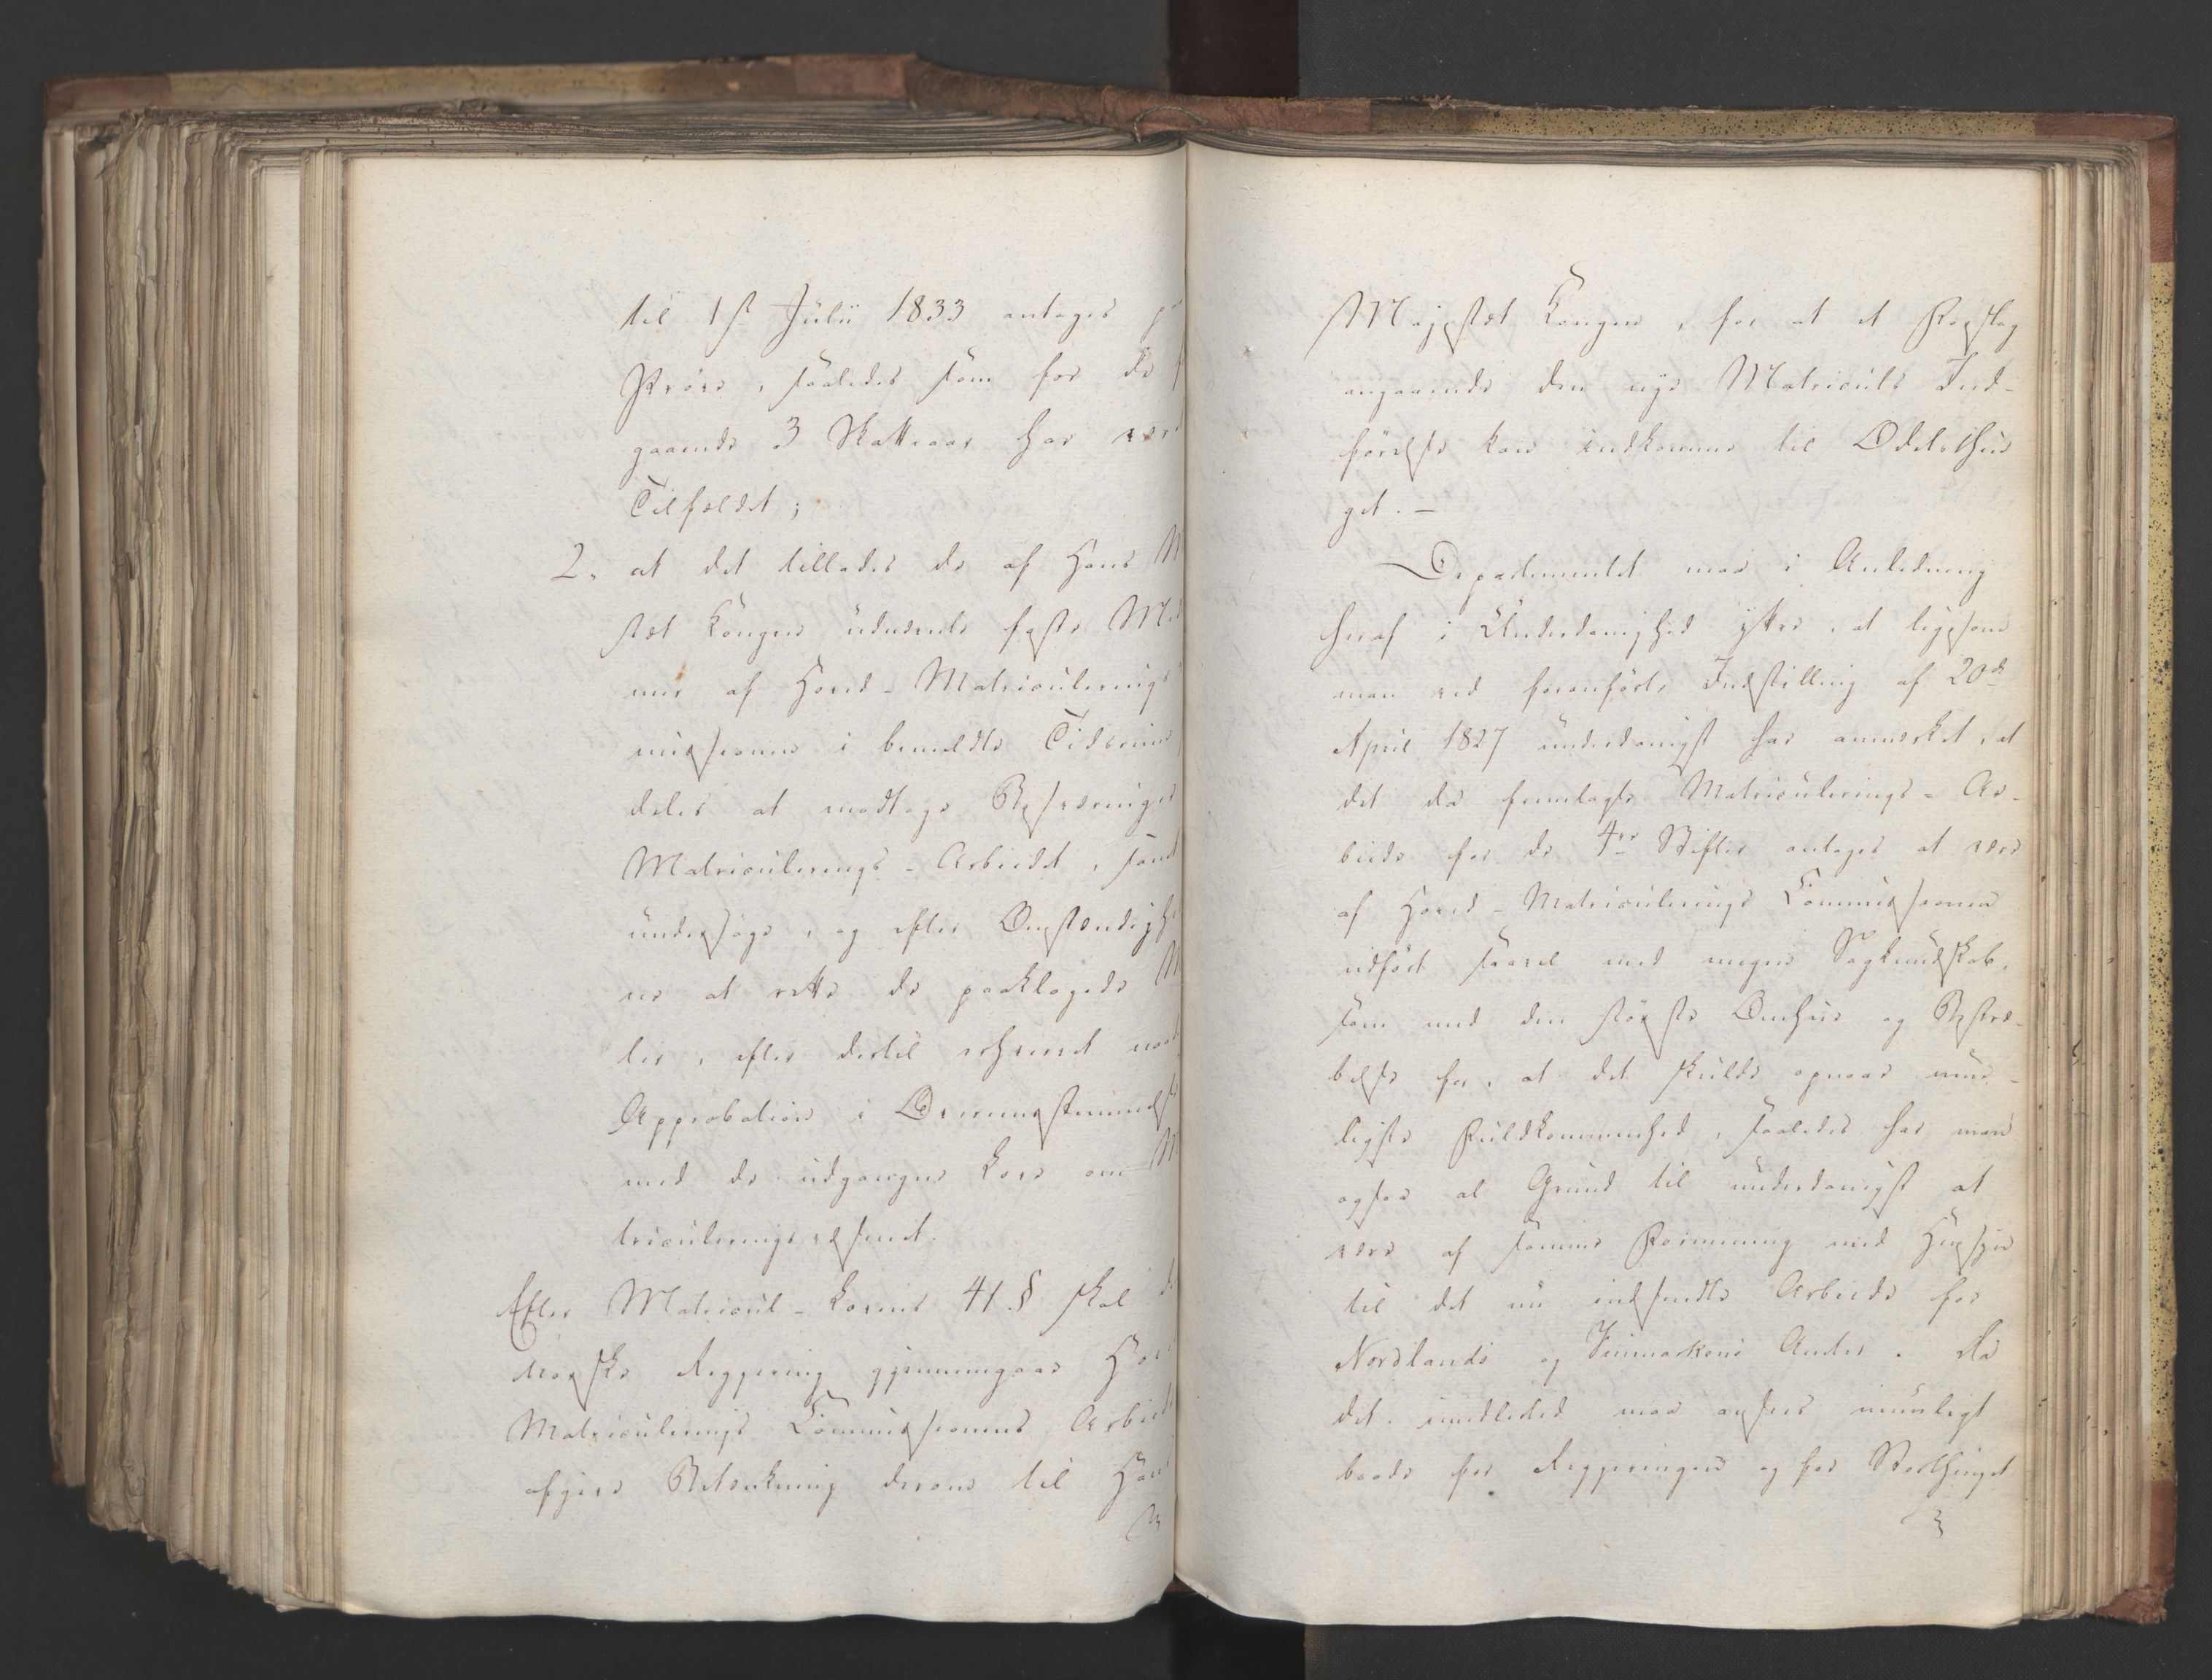 til 1ste Julii 1833 antages p
Prøve, saaledes som for de f
gaaende 3 Skatteaar har vær
Tilfældet;
2. at det tillades de af Hans M
stæt Kongen udnævnte faste Med
mer af Hoved-Matriculerings
missionen i bemeldte Tidsrum
deles at modtage Besværinger
Matriculerings-Arbeidet, samt
undersøge, og efter Omstændighe
ne at rette de paaklagede M
ler, efter dertil erhvervet naad
Approbation i Overensstemmelse
med de udgangne Love om M
triculeringsvæsenet.
Efter Matricul-Lovens 41 § skal de
norske Regjering gjennemgaae Hov
Matriculerings Commissionens Arbeide
afgive Betænkning derom til Hans
M
Majestæt Kongen, for at et Forslag
angaaende den nye Matriculs Ind-
førelse kan indkomme til Odelsthin
get. —
Departementet maa i Anledning
heraf i Underdanighed yttre, at ligesom
man ved foranførte Indstilling af 20de
April 1827 underdanigst har anmærket, at
det da fremlagte Matriculerings-Ar-
beide for de 4re Stifter antages at være
af Hoved-Matriculerings Commissionen
udført saavel med megen Sagkundskab,
som med den største Omhue og Bestræ-
belse for, at det skulde opnaae muu-
ligste Fuldkommenhed, saaledes har man
ogsaa al Grund til underdanigst at
være af samme Formening med Hensyn
til det nu indsendte Arbeide for
Nordlands og Finmarkens Amter. Da
det imidlertid maa ansees umuuligt
baade for Regjeringen og for Storthinget